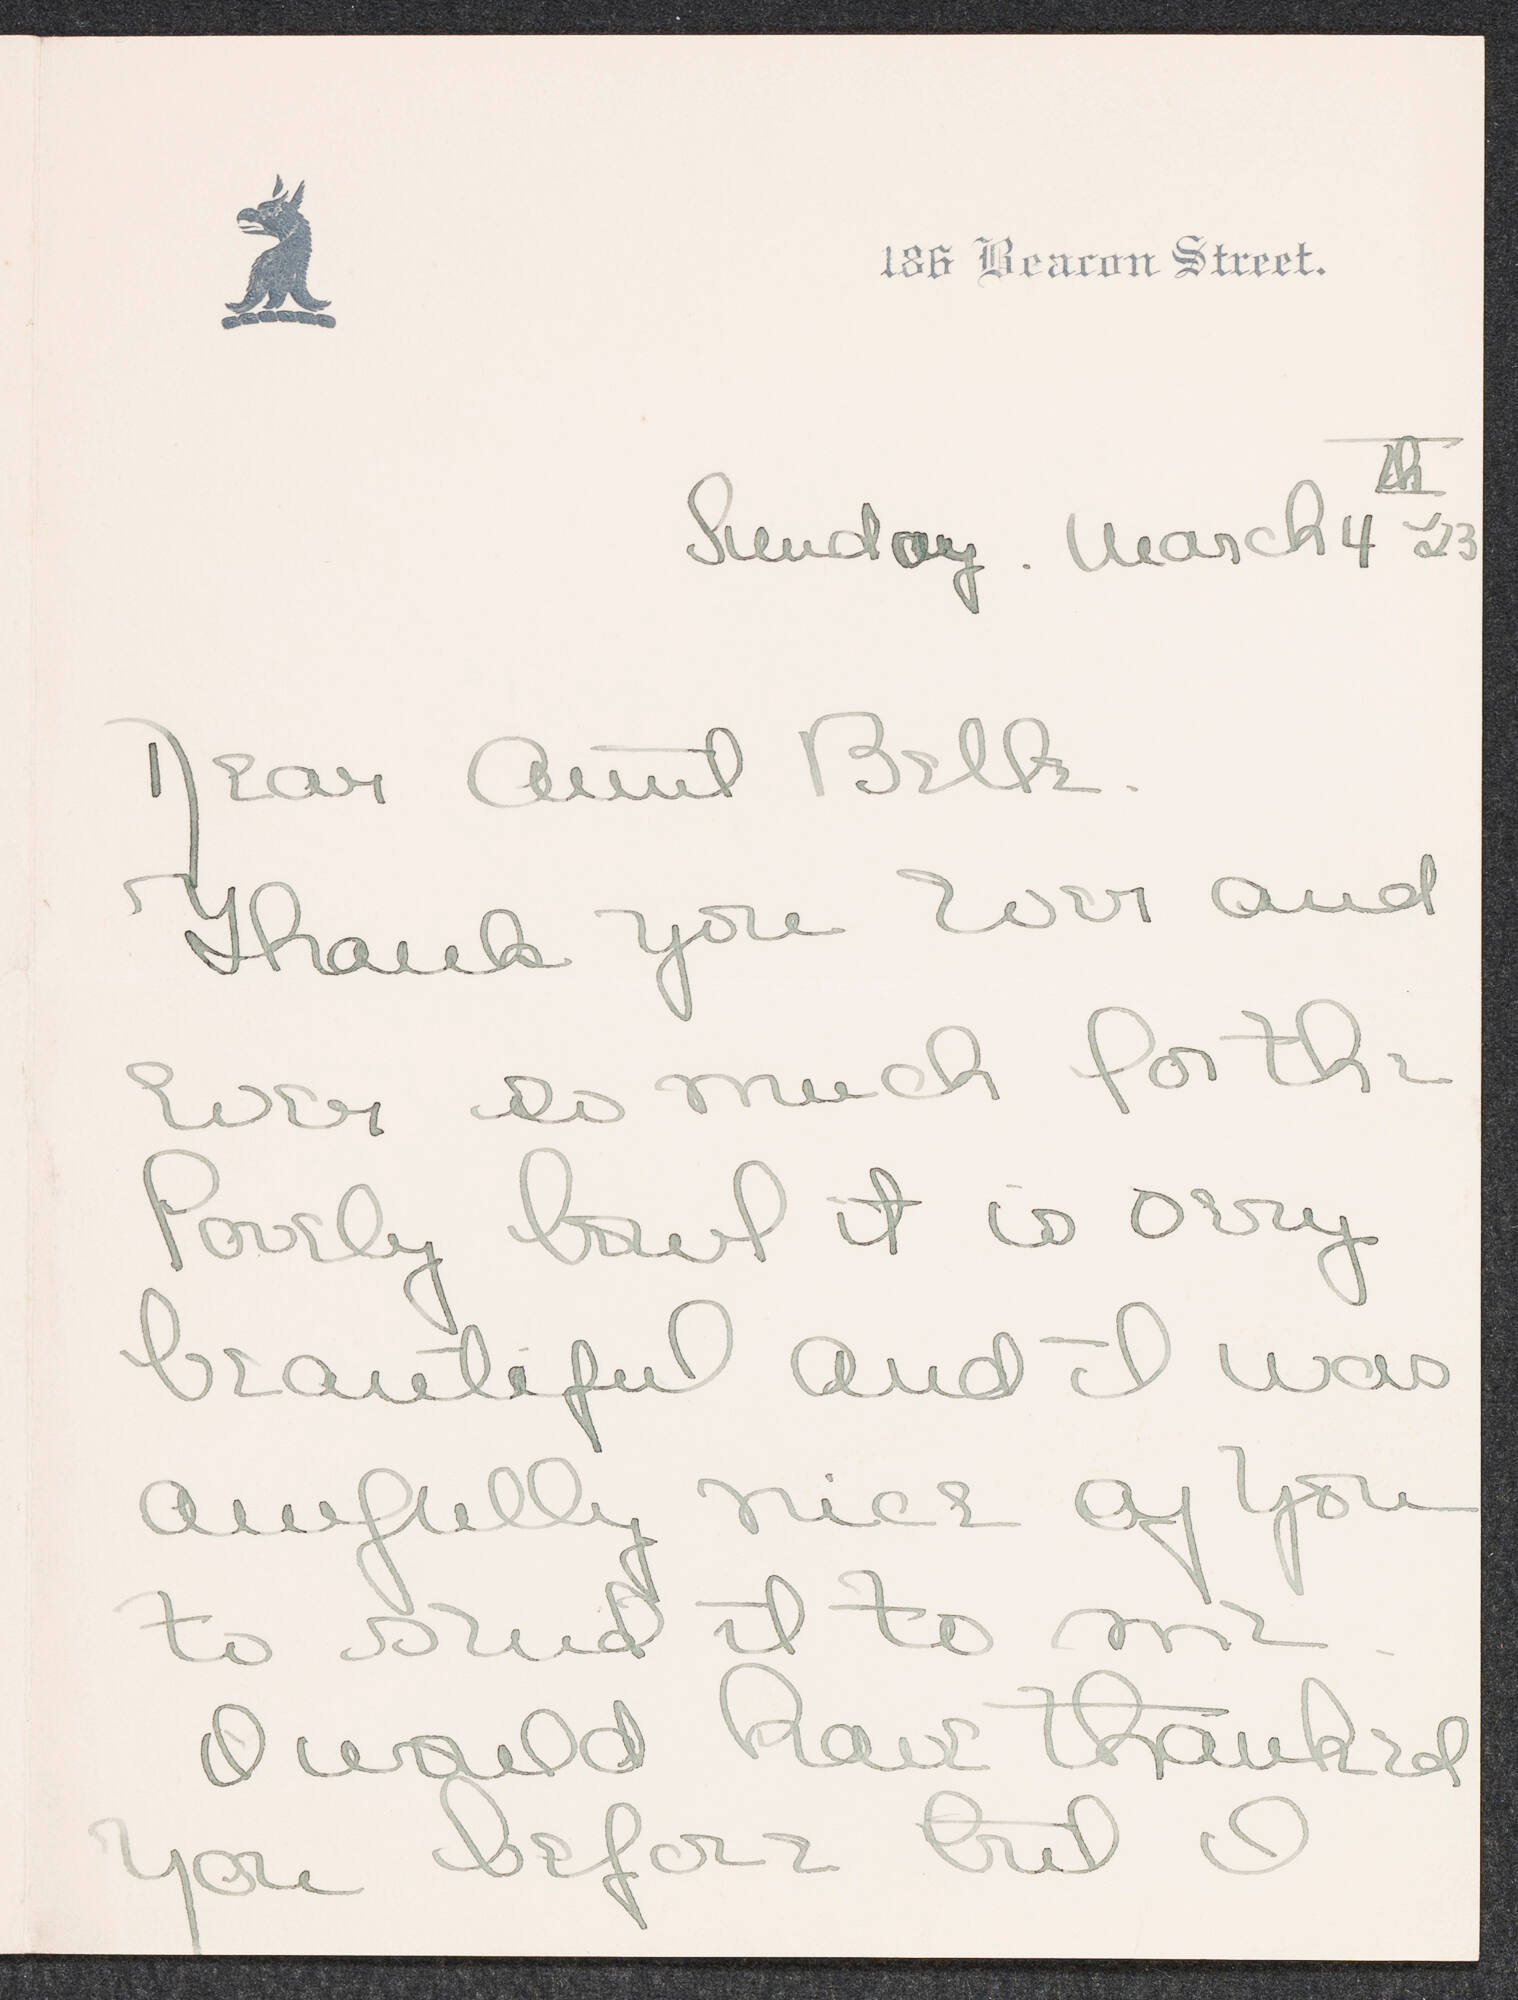 186 Beacon Street.
Sunday. March 4th '23
Dear Aunt Belle.
Thank you ever and
ever so much for the
lovely bowl it is very
beautiful and it was
awfully nice of you
to send it to me.
I would have thanked
you before but I